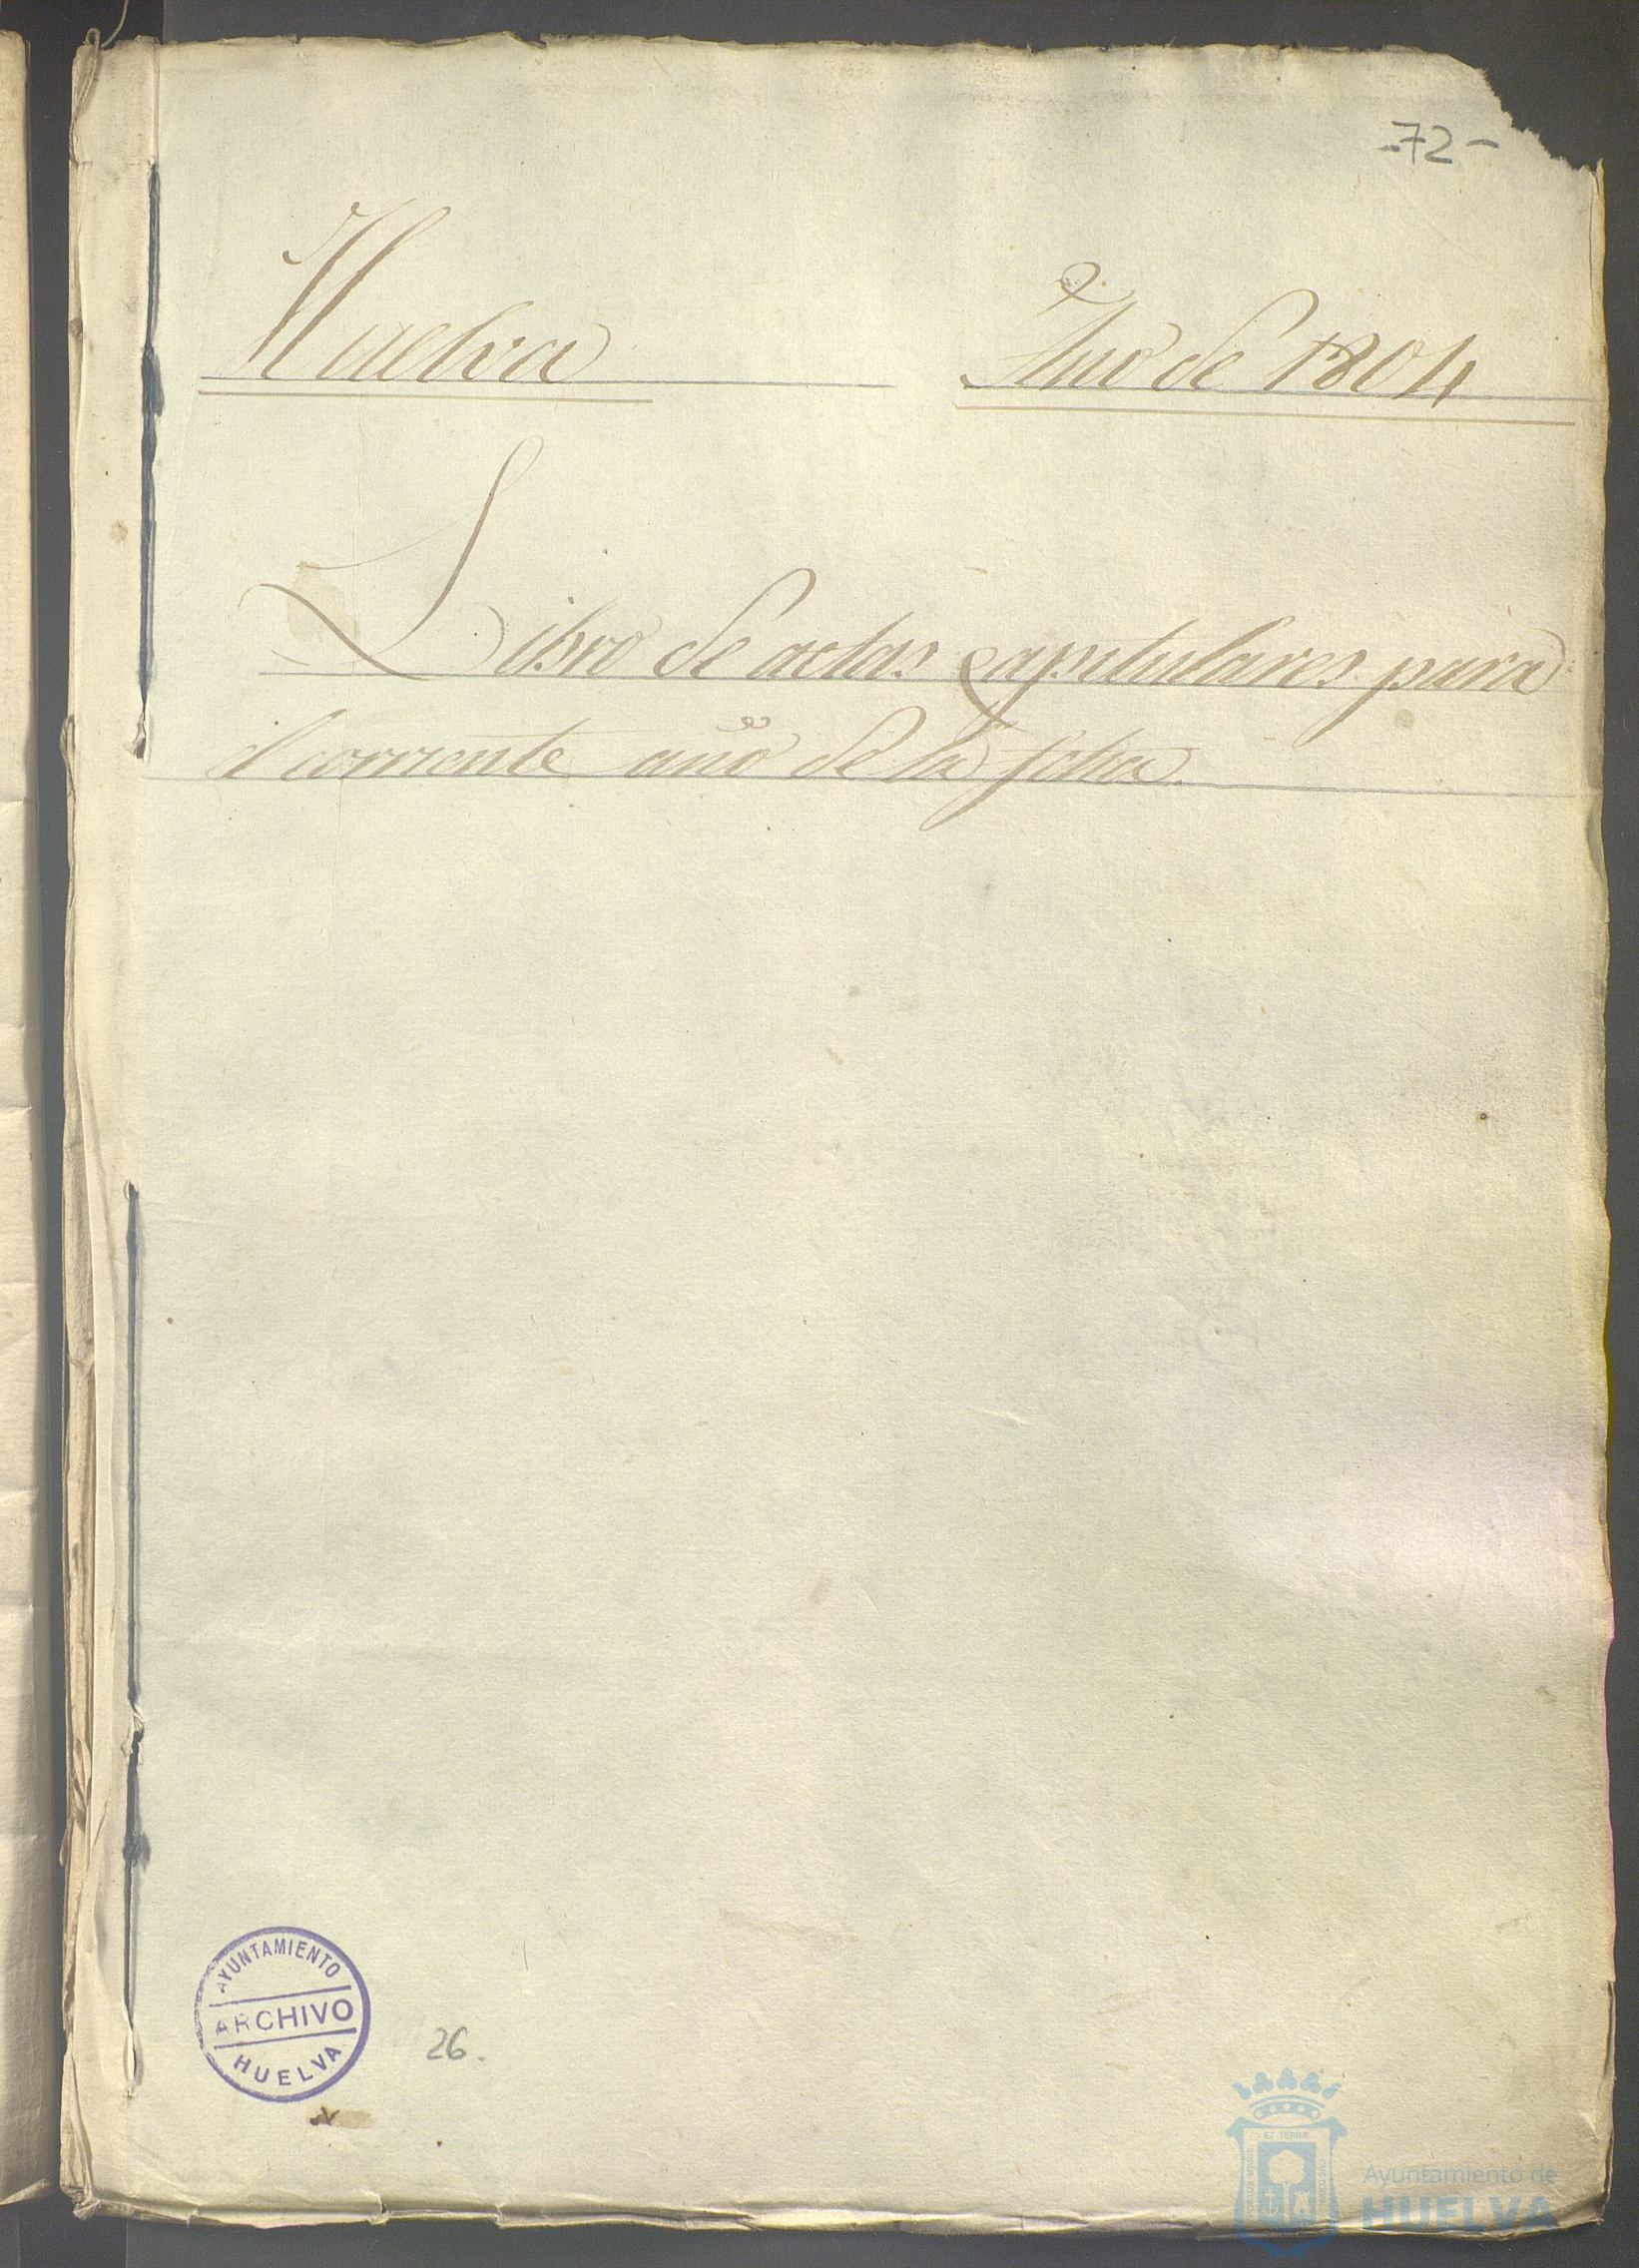 -72-
Huelva Año de 1804
Libro de actas capitulares para
el corriente año de la fcha.
AYUNTAMIENTO
ARCHIVO
HUELVA
26.
Ayuntamiento de
HUELVA